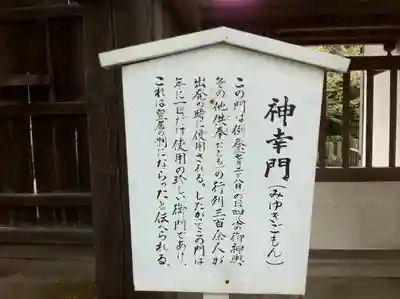 神幸門(みゆきごもん)
この門は例祭の御神輿、
その他供奉だともの行列三百余人が
出発の時に使用される。したがってこの門は
年に一日だけ使用の珍しい御門であり、
これは皇居の制にならったと伝へられる。